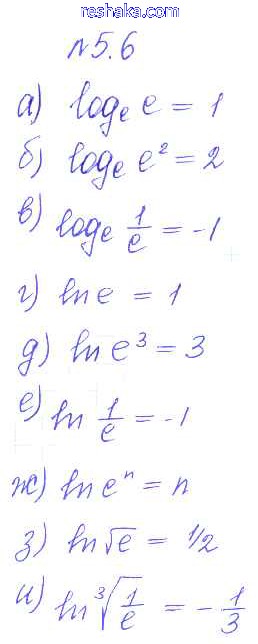 reshaka.com
№5.6
а) logₑ e = 1
б) logₑ e² = 2
в) logₑ 1/e = -1
г) ln e = 1
д) ln e³ = 3
е) ln 1/e = -1
ж) ln eⁿ = n
з) ln √e = 1/2
и) ln ∛(1/e) = -1/3